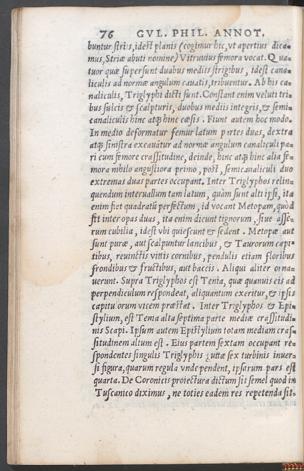 76 GVL. PHIL. ANNOT.
buntur striis, idest planis (cogimur hic, vt apertius dica-
mus, Striæ abuti nomine) Vitruuius femora vocat. Quatuor
quæ supersunt duabus mediis strigibus, idest cana-
liculis ad normæ angulum cauatis, tribuuntur. Ab his ca-
naliculis, Triglyphi dicti sunt. Constant enim veluti tri-
bus sulcis & scalpturis, duobus mediis integris, & semi-
canaliculis hinc atque hinc cæsis. Fiunt autem hoc modo.
In medio deformatur femur latum partes duas, dextra
atque sinistra excauātur ad normæ angulum canaliculi pa-
ri cum femore crassitudine, deinde, hinc atque hinc alia fe-
mora nihilo angustiora primo, post, semicanaliculi duo
extremas duas partes occupant. Inter Triglyphos relin-
quendum interuallum tam latum, quàm sunt alti ipsi, ita
enim fiet quadratū perfectum, id vocant Metopam, quòd
sit inter opas duas, ita enim dicunt tignorum, siue asse-
rum cubilia, idest vbi quiescunt & sedent. Metopæ aut
sunt puræ, aut scalpuntur lancibus, & Taurorum capi-
tibus, reuinctis vittis cornubus, pendulis etiam floribus
frondibus & fructibus, aut baccis. Aliqui aliter orna-
uerunt. Supra Triglyphos est Tenia, quæ quanuis eis ad
perpendiculum respondet, aliquantum exeritur, & ipsis
capitulorum vicem præstat. Inter Triglyphos & Epi-
stylium, est Tenia alta septima parte mediæ crassitudi-
nis Scapi. Ipsum autem Epistylium totam mediam cras-
situdinem altum est. Eius partem sextam occupant re-
spondentes singulis Triglyphis guttæ sex turbinis inuer-
si figura, quarum regula vnde pendent, ipsarum pars est
quarta. De Coronicis proiectura dictum sit semel quod in
Tuscanico diximus, ne toties eadem res repetenda sit.